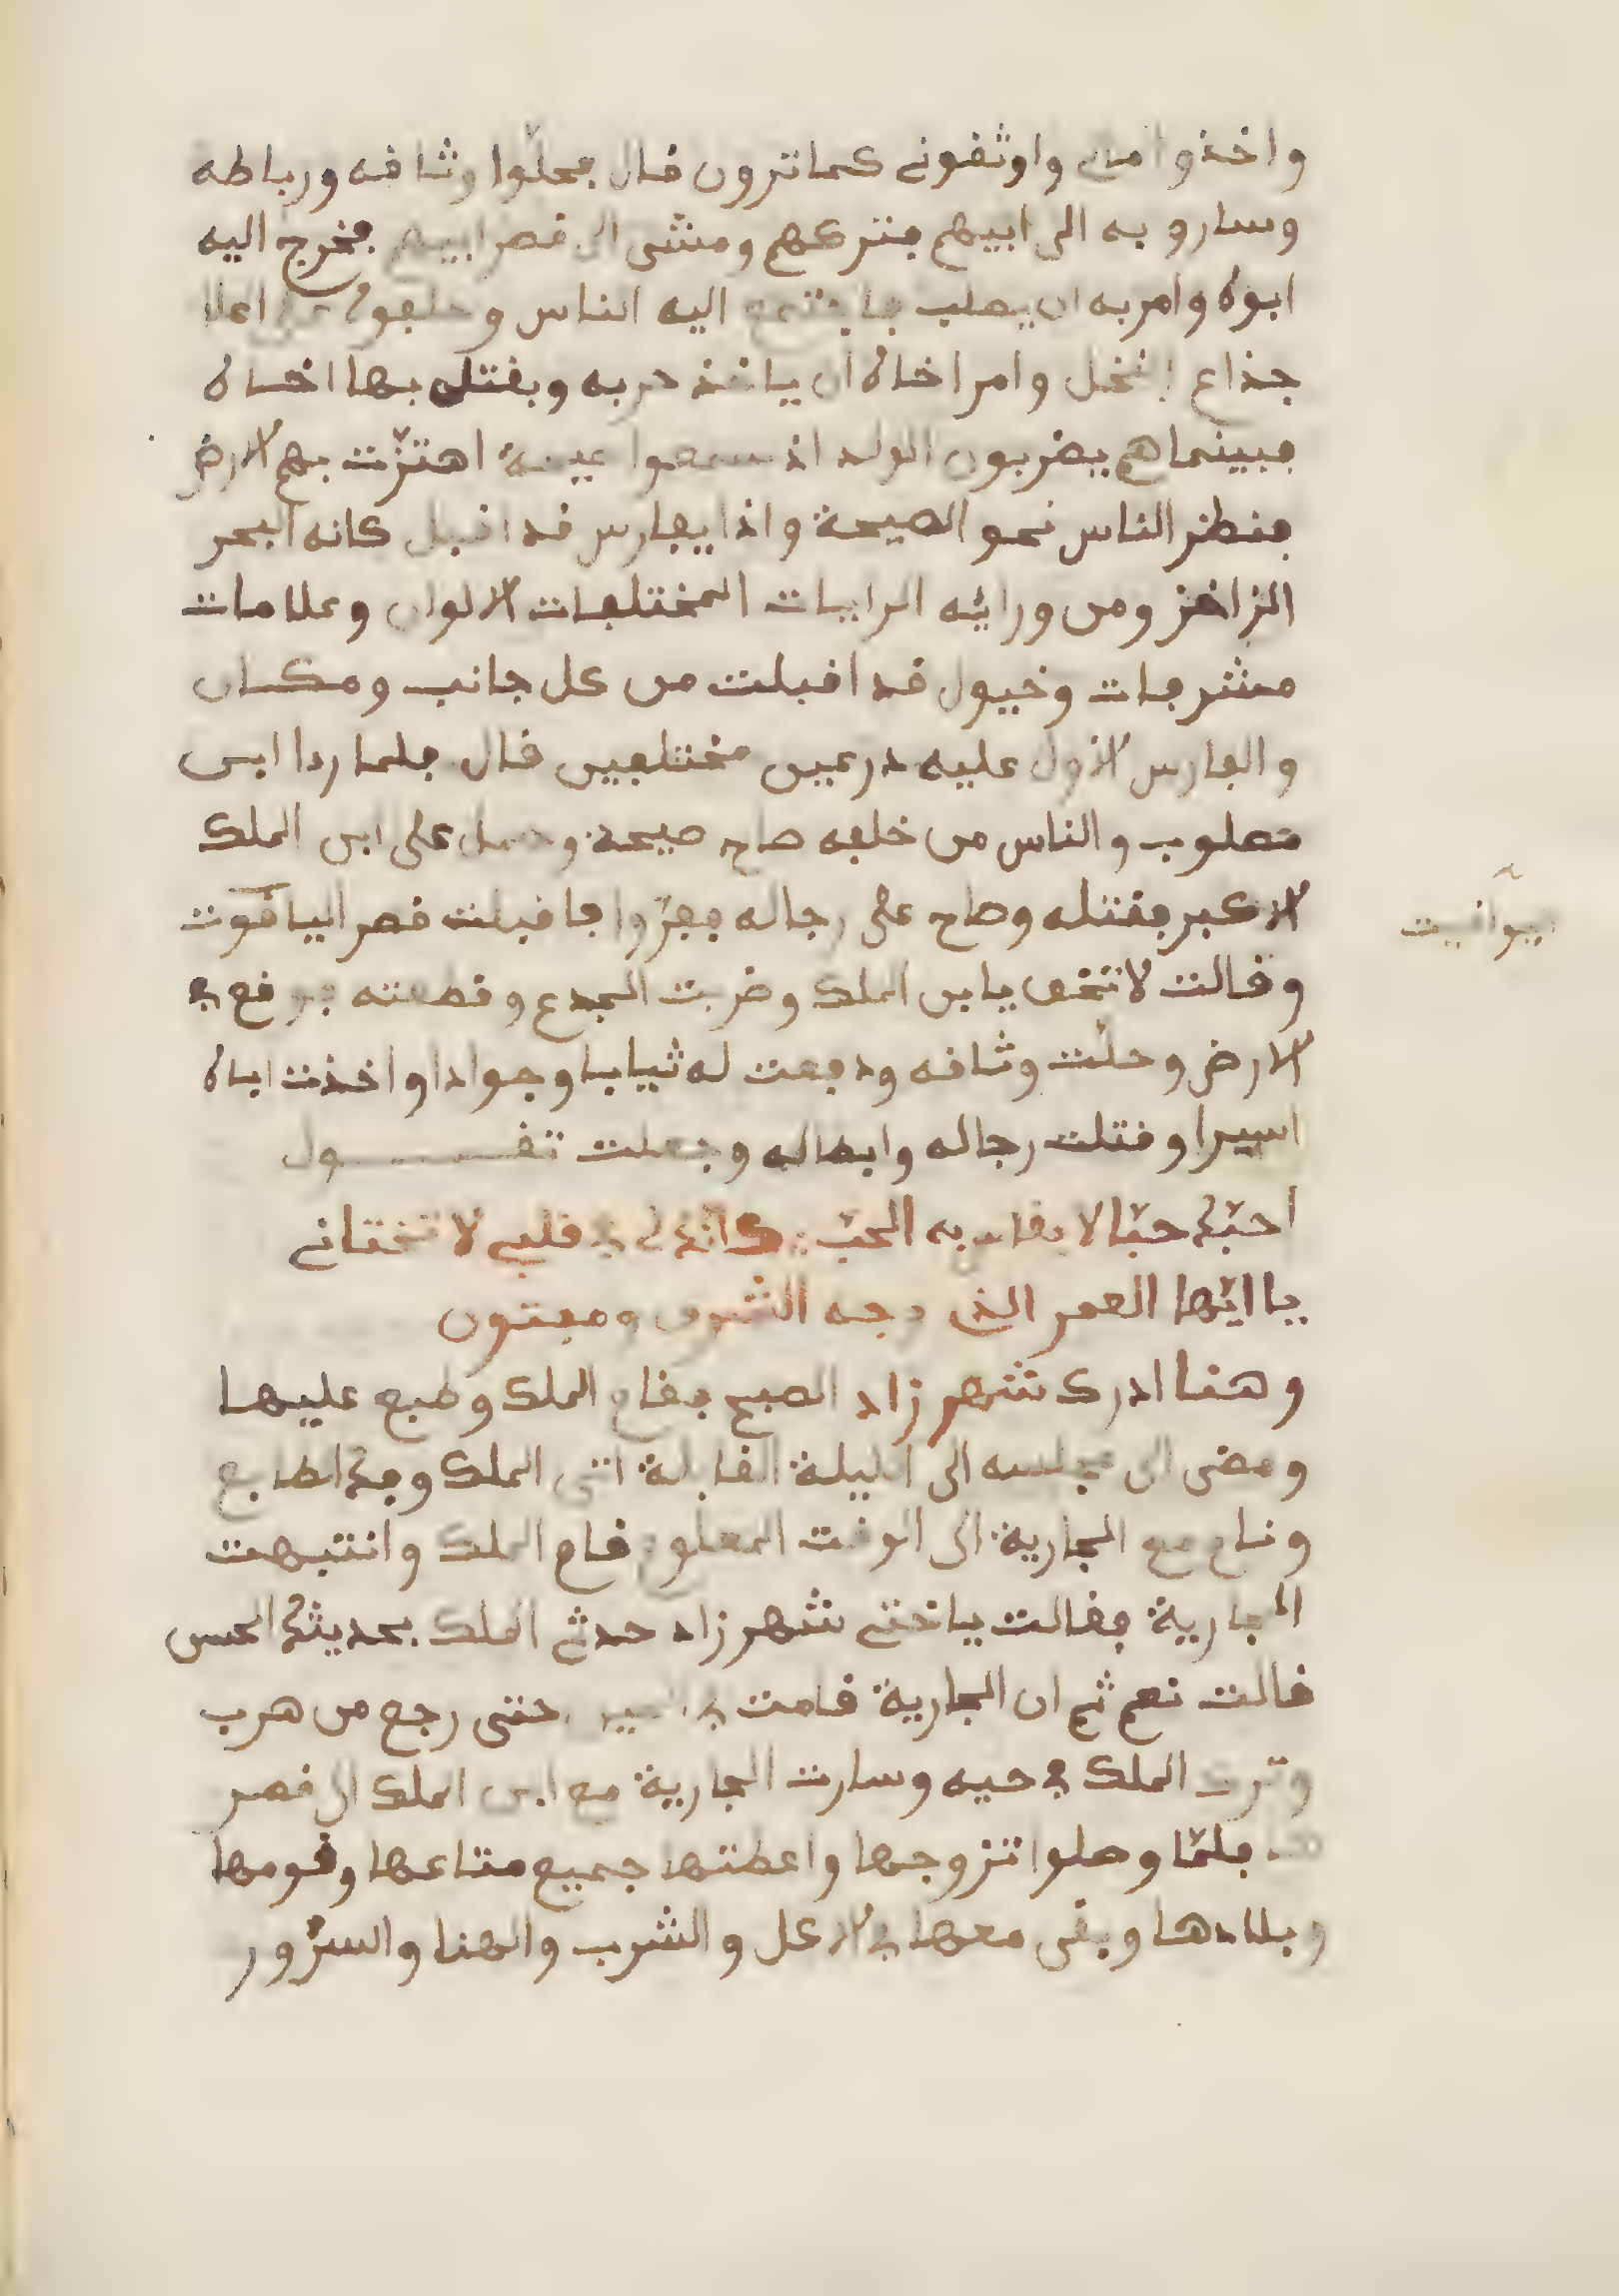 واخذوا مالي واوثقوني كما ترون قال فحلّوا وثاقه ورباطه
وسارو به الى ابيهم فتركهم ومشى الى قصر ابيهم فخرج اليه
ابوه وامر به ان يصلب فاجتمع اليه الناس و على اعلا
جذاع النخل وامر اخاه ان ياخذ حربه ويقتل بها اخاه
فبينما هم يضربون الولد اذ سمعوا صيحة اهتزّت بهم الارض
فنظر الناس نحو الصيحة واذا بفارس قد اقبل كانه البحر
الزاخر ومن ورائه الرايات المختلفات الالوان وعلامات
مشرفات وخيول قد اقبلت من كل جانب ومكان
والفارس الاول عليه درعين مختلفين قال فلما را ابن
مصلوب والناس من خلفه صاح صيحة وحمل على ابن الملك
الاكبر فقتله وصاح على رجاله ففرّوا فاقبلت قصر الياقوت
يوآقيت
وقالت لا تخف يابن الملك وضربت الجدع وقطعته فوقع في
الارض وحلّت وثاقه ودفعت له ثيابا وجوادا واخذت اباه
اسيرا وقتلت رجاله وابطاله وجعلت تقول
احبّك حبّا لا يقاس به الحبّ كانّك في قلبي لا تختاني
يا ايّها القمر الذي وجه الشوق ومفتون
وهنا ادرك شهرزاد الصبح فقام الملك وطبع عليها
ومضى الى مجلسه الى الليلة القابلة اتى الملك وفك الطابع
ونام مع الجارية الى الوقت المعلوم قام الملك وانتبهت
الجارية فقالت ياختي شهرزاد حدثي الملك بحديثك الحسن
قالت نعم ثم ان الجارية قامت في حتى رجع من هرب
وترك الملك في حيه وسارت الجارية مع ابن الملك الى قصر
فلمّا وصلوا تزوجها واعطتها جميع متاعها وقومها
وبلادها وبقى معها في الاكل والشرب والهنا والسرور